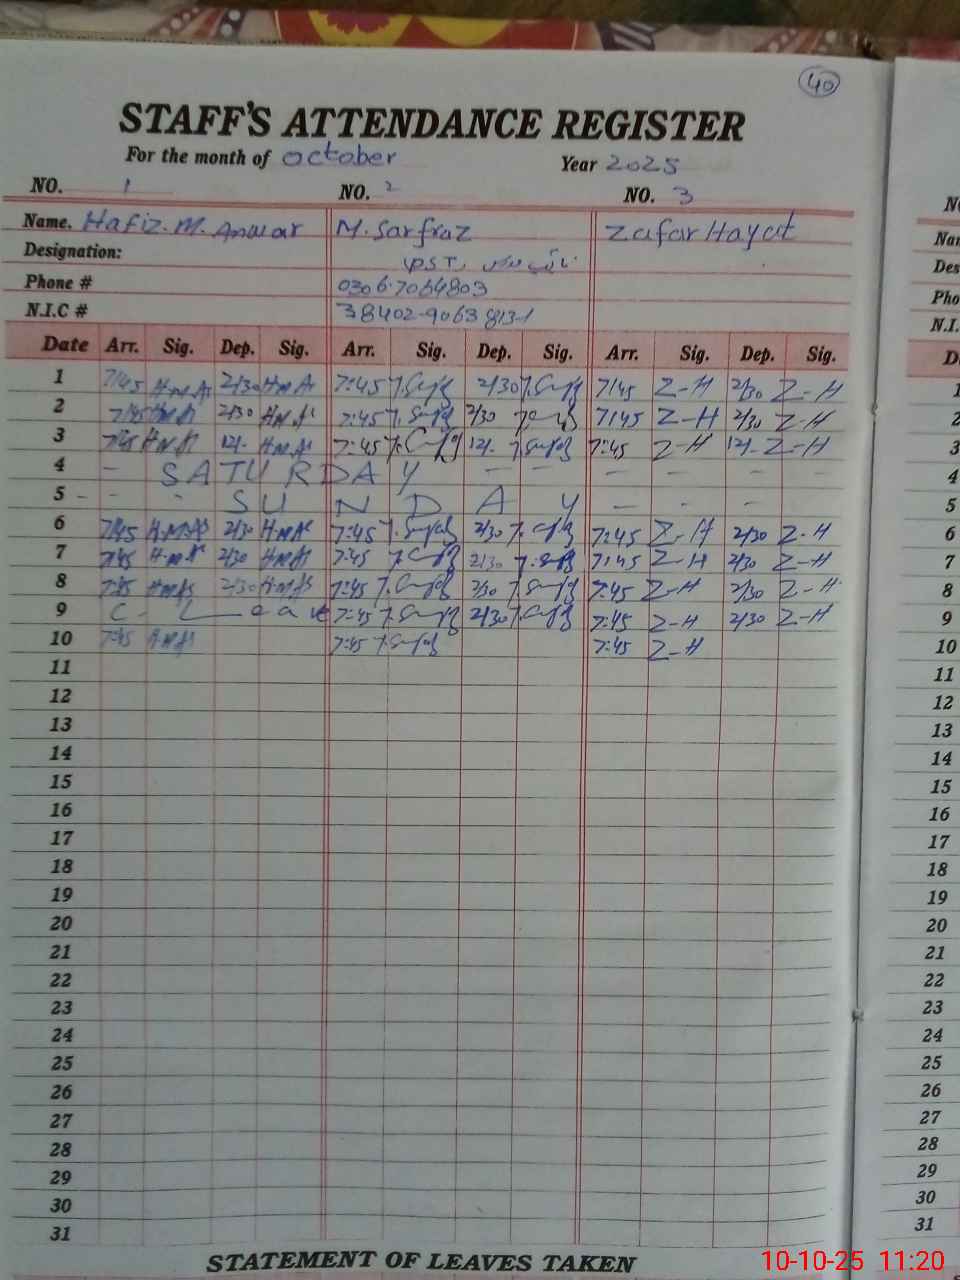 40
STAFF'S ATTENDANCE REGISTER
For the month of October Year 2025
NO. 1 NO. 2 NO. 3
Name. Hafiz. M. Anwar M. Sarfraz Zafar Hayat
Designation: PST
Phone # 0306-7064803
N.I.C #
Date Arr. Sig. Dep. Sig. Arr. Sig. Dep. Sig. Arr. Sig. Dep. Sig.
1 7/45 H.M.A 2/30 H.M.A 7:45 2/30 7/45 Z-H 2/30 Z-H
2 7/45 H.M.A 2/30 H.M.A 7:45 2/30 7/45 Z-H 2/30 Z-H
3 7/45 H.M.A 12/- H.M.A 7:45 12/- 7:45 Z-H 12/- Z-H
4 - SATURDAY - - - - - -
5 - - - SUNDAY - - - -
6 7/45 H.M.A 2/30 H.M.A 7:45 2/30 7:45 Z-H 2/30 Z-H
7 7/45 H.M.A 2/30 H.M.A 7:45 2/30 7:45 Z-H 2/30 Z-H
8 7/45 H.M.A 2/30 H.M.A 7:45 2/30 7:45 Z-H 2/30 Z-H
9 C- Leave 7:45 2/30 7:45 Z-H 2/30 Z-H
10 7:45 H.M.A 7:45 7:45 Z-H
11
12
13
14
15
16
17
18
19
20
21
22
23
24
25
26
27
28
29
30
31
STATEMENT OF LEAVES TAKEN
10-10-25 11:20